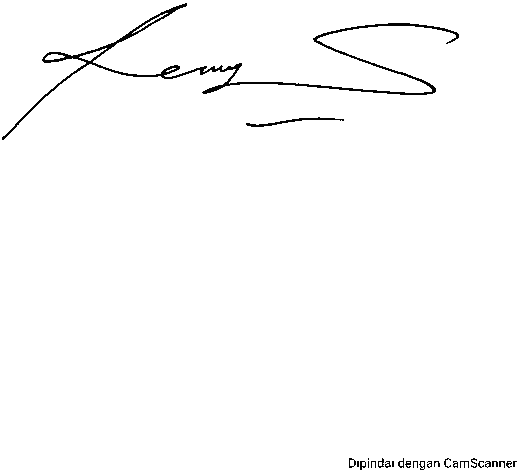 Remy S
Dipindai dengan CamScanner